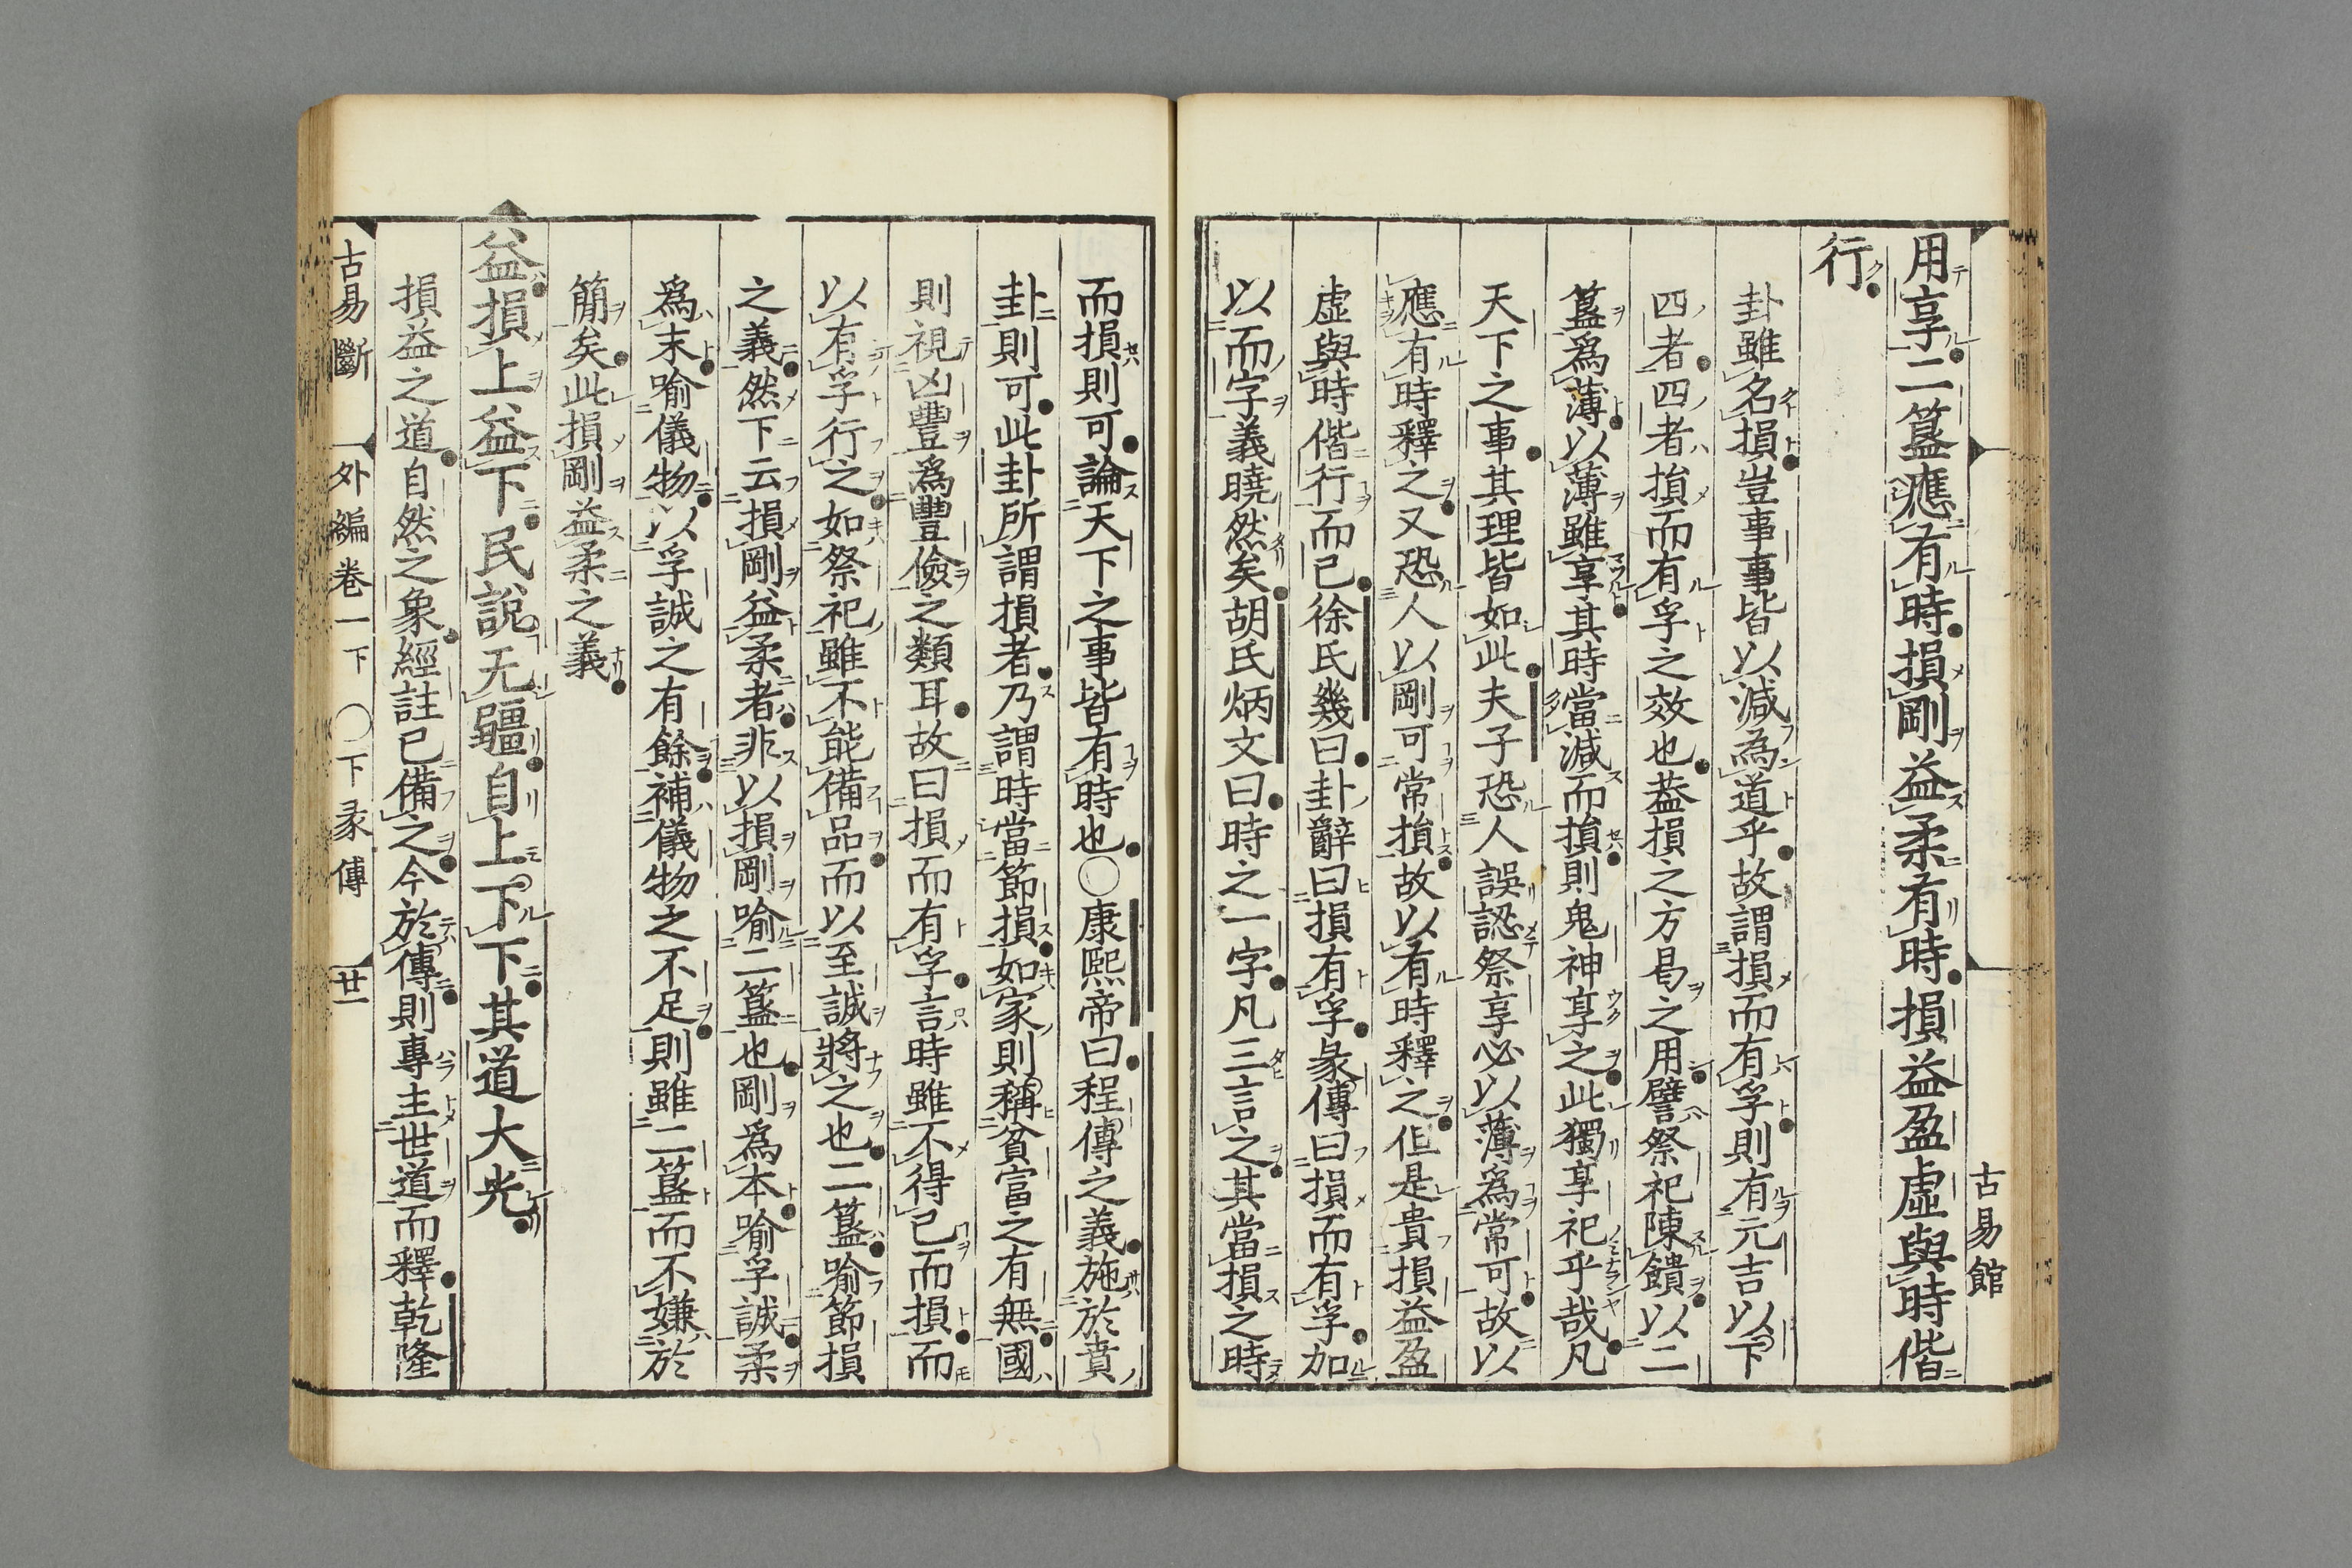 用享二簋應有時損剛益柔有時損益盈虛與時偕
行
卦雖名損豈事事皆以減為道乎故謂損而有孚則有元吉以下
四者四者損而有孚之效也葢損之方曷之用譬祭祀陳饋以二
簋爲薄以薄雖享其時當減而損則鬼神享之此獨享祀乎哉凡
天下之事其理皆如此夫子恐人誤認祭享必以薄爲常可故以
應有時釋之又恐人以剛可常損故以有時釋之但是貴損益盈
虛與時偕行而已徐氏幾曰卦辭曰損有孚彖傳曰損而有孚加
以而字義曉然矣胡氏炳文曰時之一字凡三言之其當損之時
古易館
而損則可論天下之事皆有時也〇康熙帝曰程傳之義施於賁
卦則可此卦所謂損者乃謂時當節損如家則稱貧富之有無國
則視凶豐爲豐儉之類耳故曰損而有孚言時雖不得已而損而
以有孚行之如祭祀雖不能備品而以至誠將之也二簋喻節損
之義然下云損剛益柔者非以損剛喻二簋也剛爲本喻孚誠柔
爲末喻儀物以孚誠之有餘補儀物之不足則雖二簋而不嫌於
簡矣此損剛益柔之義
益損上益下民說无疆自上下下其道大光
損益之道自然之象經註已備之今於傳則專主世道而釋乾隆
古易斷　外編卷一下　〇下彖傳　廿一